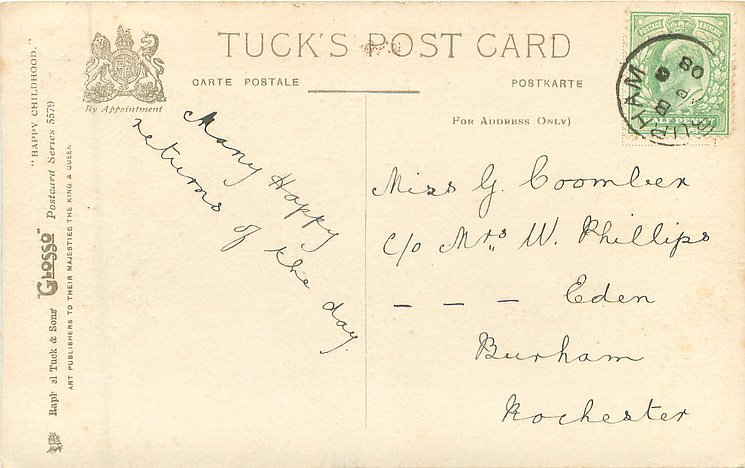 TUCK'S POST CARD
CARTE POSTALE
POSTKARTE
By Appointment
FOR ADDRESS ONLY)
POSTAGE
HALF PENNY
BURHAM
08
Many Happy
returns of the day.
Miss G. Coomber
c/o Mrs W. Phillips
— — — Eden
Burham
Rochester
"HAPPY CHILDHOOD."
Raph al Tuck & Sons' "Glosso" Postcard Series 5579
ART PUBLISHERS TO THEIR MAJESTIES THE KING & QUEEN